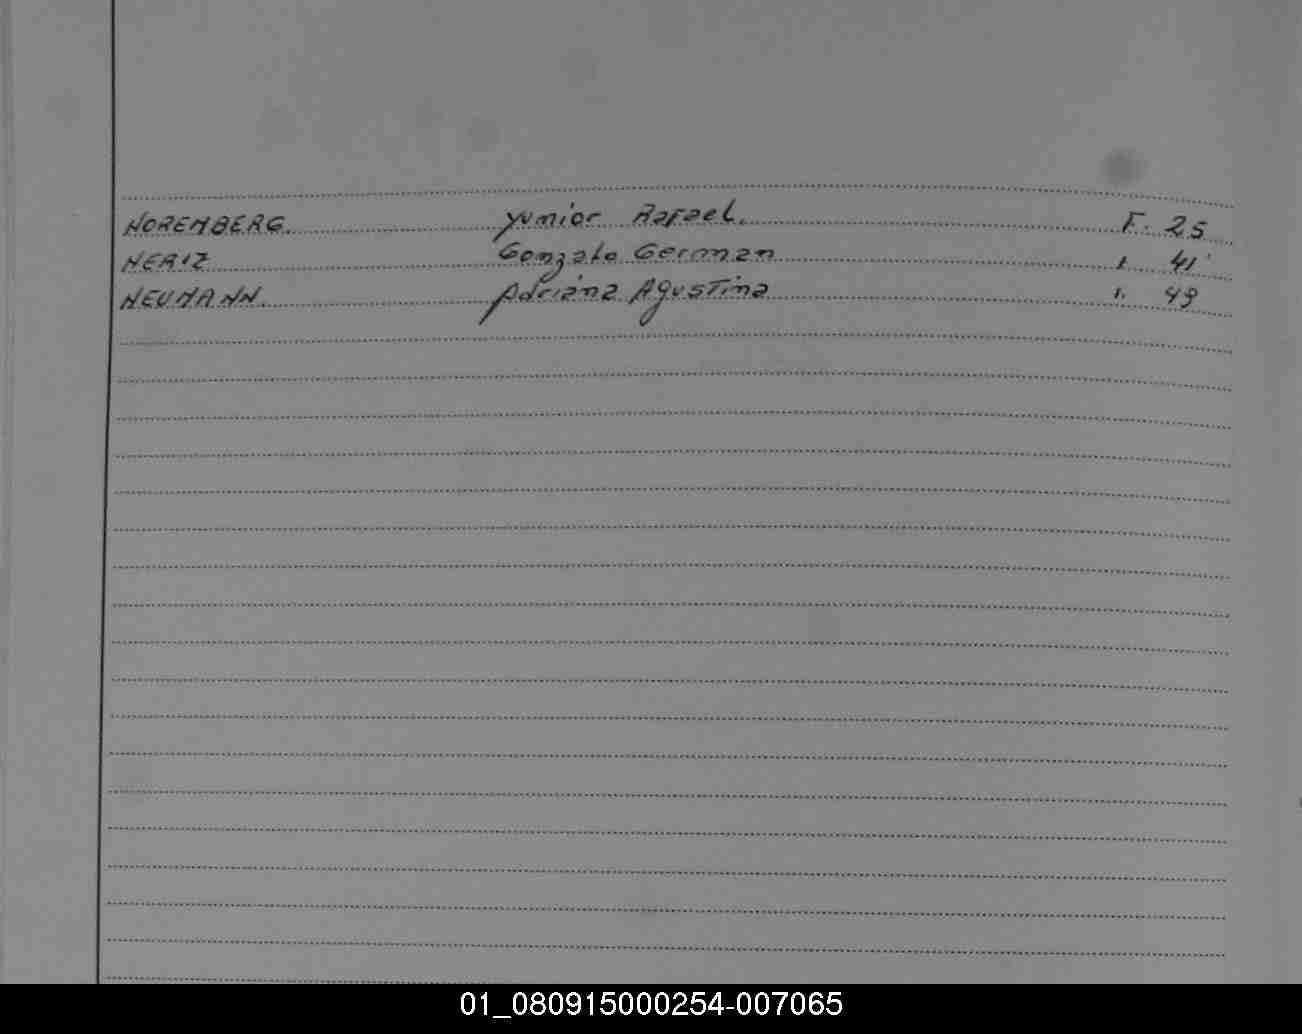 NOREMBERG. Yunior Rafael. F. 25
NERIZ Gonzalo German " 41
NEUMANN. Adriana Agustina " 49
01_080915000254-007065